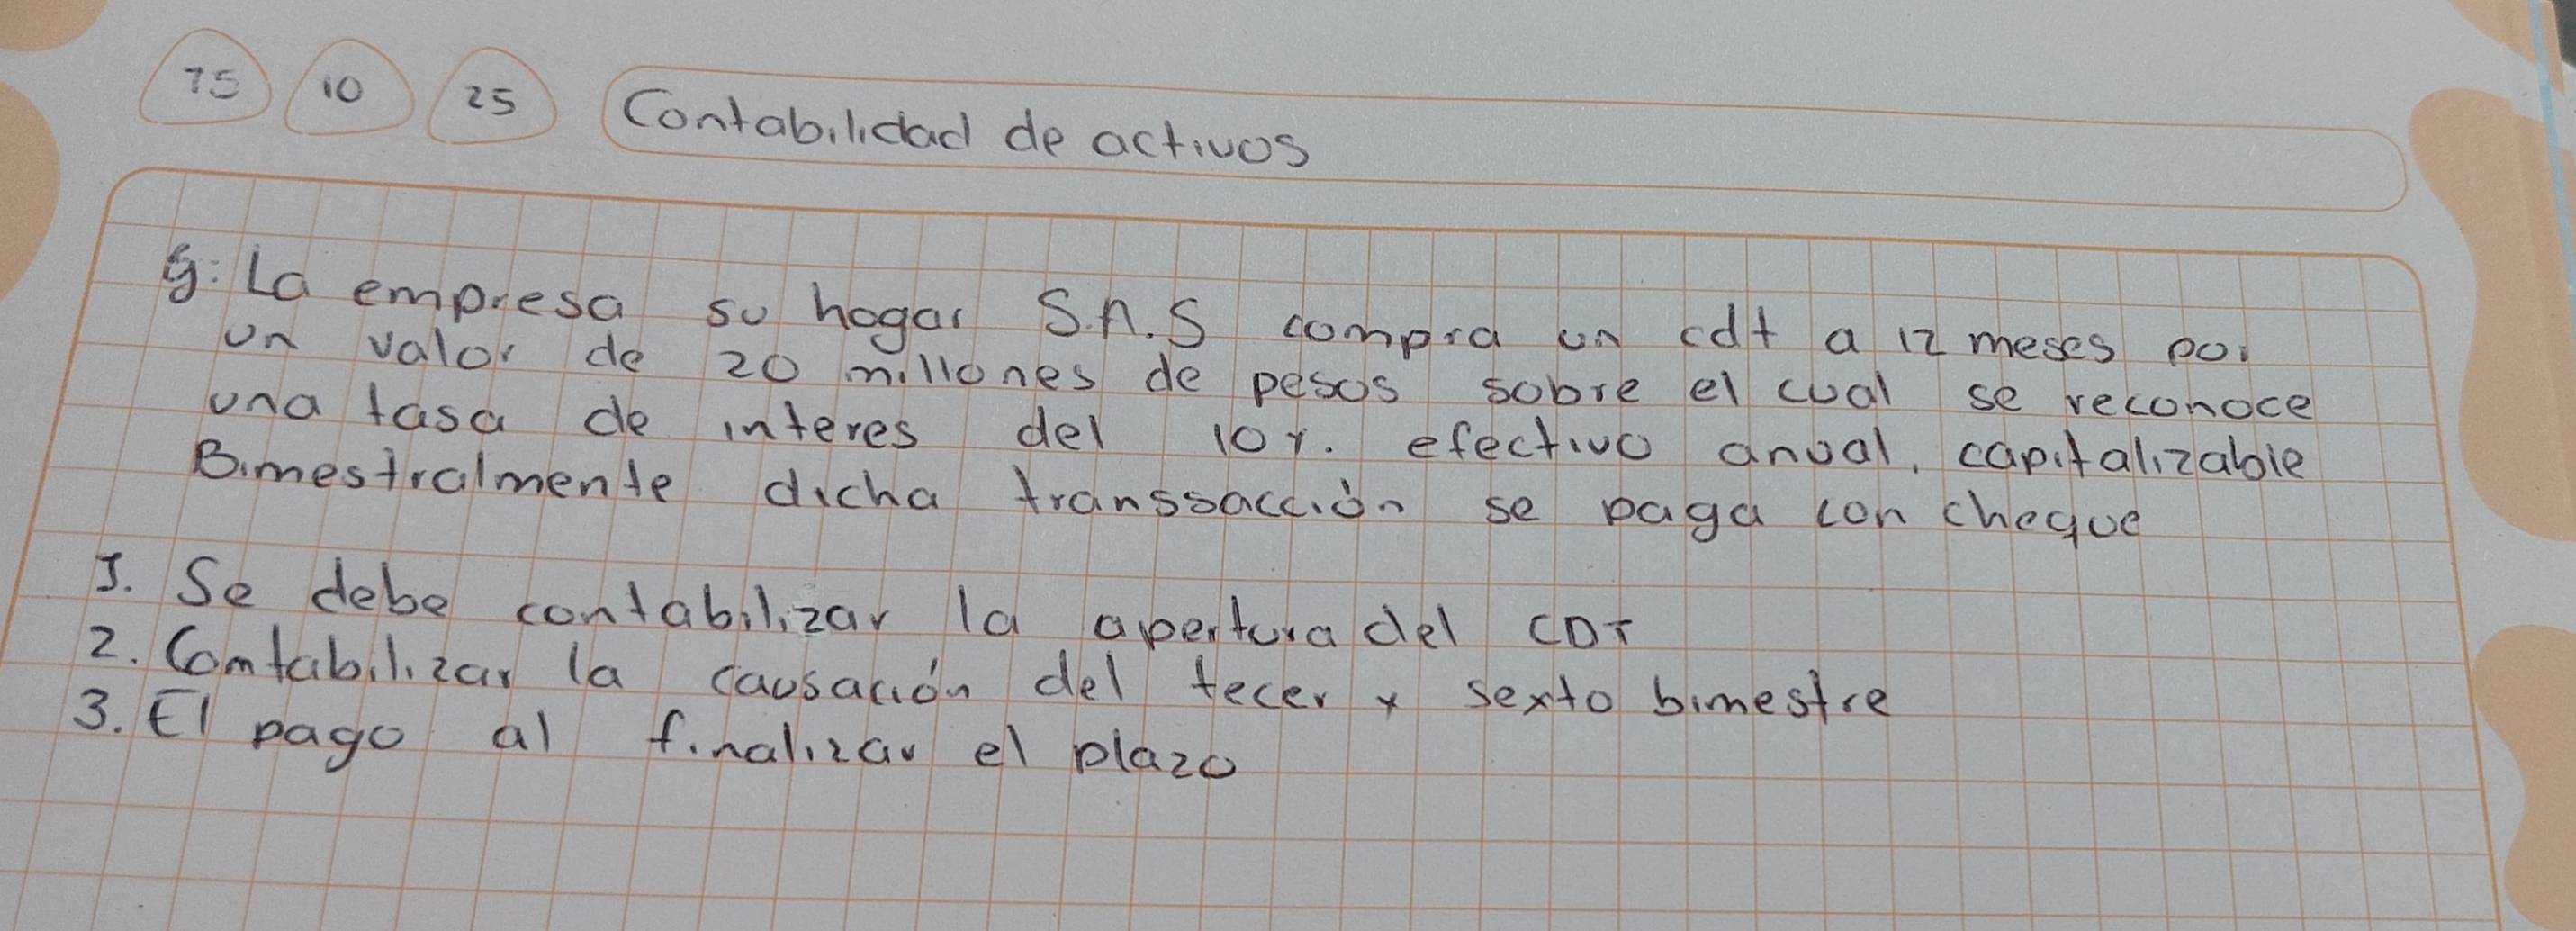 15 10 25 Contabilidad de activos
g: La empresa su hogar S.A.S compra un cdt a 12 meses por
un valor de 20 millones de pesos sobre el cual se reconoce
una tasa de interes del 10%. efectivo anual, capitalizable
Bimestralmente dicha transsacción se paga con cheque
1. Se debe contabilizar la apertura del CDT
2. Contabilizar la causación del tecer y sexto bimestre
3. El pago al finalizar el plazo